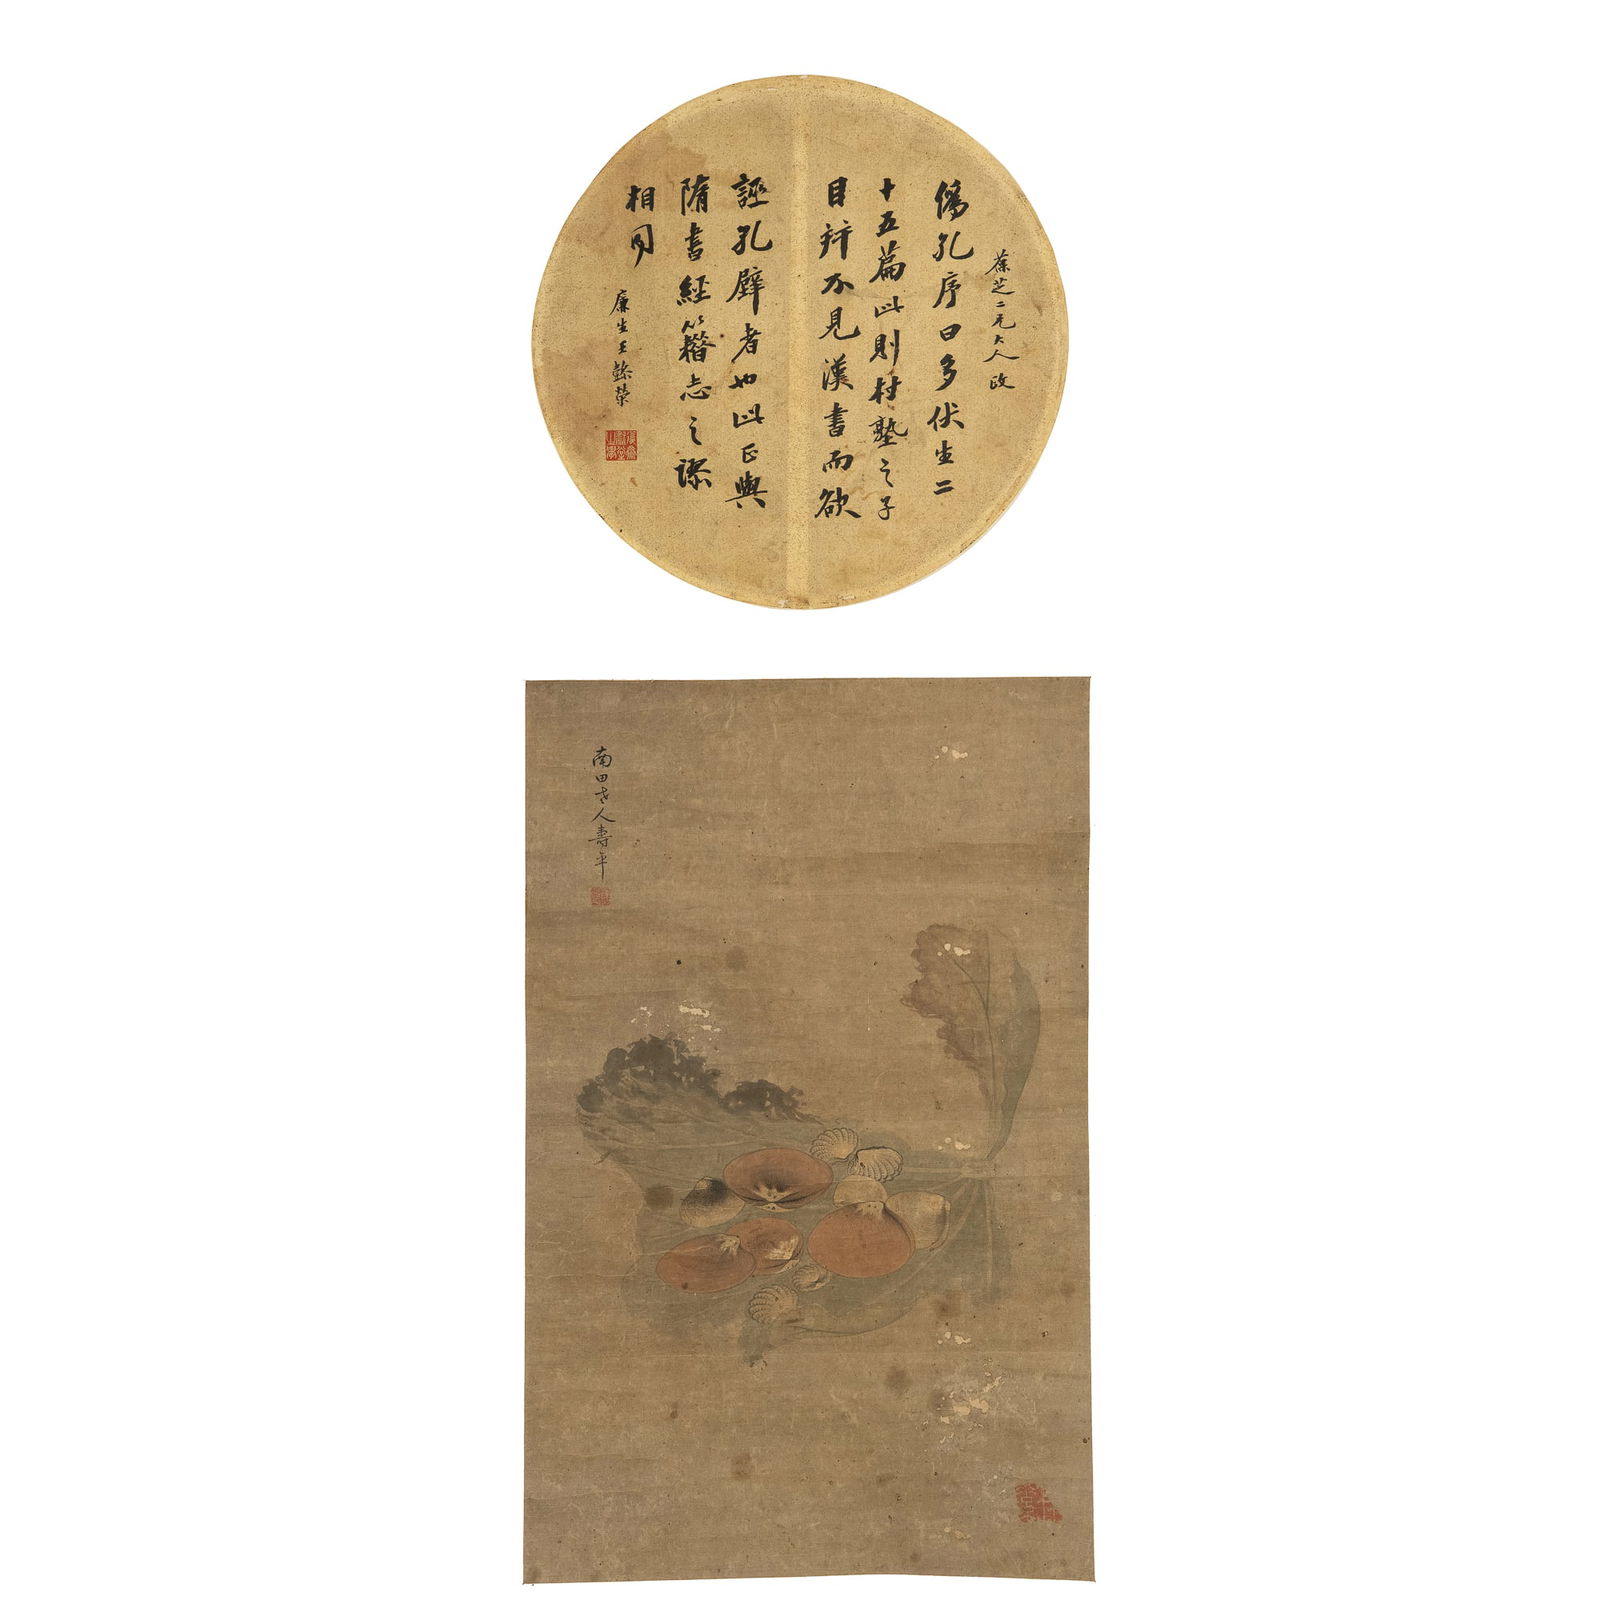 葆芝二兄大人政
偽孔序曰多伏生二
十五篇此則村塾之子
目辨不見漢書而欲
誣孔壁者也此正與
隋書經籍志之謬
相同
廉生王懿榮
南田老人壽平